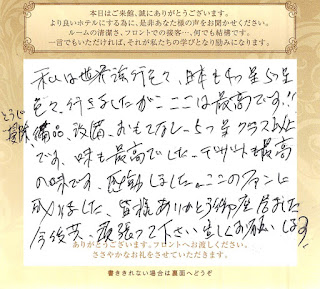 本日はご来館、誠にありがとうございます。
より良いホテルにする為に、是非あなた様の声をお聞かせください。
ルームの清潔さ、フロントでの接客…、何でも結構です。
一言でもいただければ、それが私たちの学びとなり励みになります。
私は世界旅行をして、日本も四ツ星五ツ星
色々行きましたがここは最高です!!
備品、設備、おもてなし、五つ星クラス以上
です、味も最高でした、デザートも最高
の味です、感動しました。ここのファンに
成りました、皆様ありがとう御座居ました
今後共、頑張って下さい宜しくお願いします
ありがとうございます。フロントへお渡しください。
ささやかなお礼をさせていただきます。
書ききれない場合は裏面へどうぞ